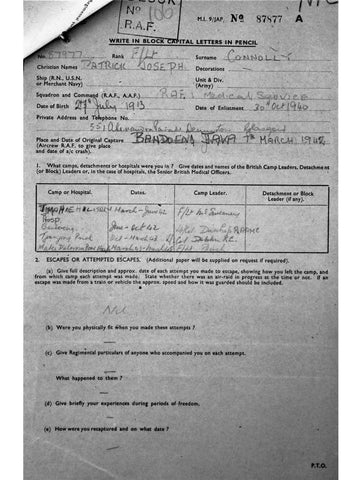 No 100
R.A.F.
M.I. 9/JAP. No 87877 A
WRITE IN BLOCK CAPITAL LETTERS IN PENCIL
No. 57977 Rank F/Lt Surname CONNOLLY
Christian Names PATRICK JOSEPH Decorations
Ship (R.N., U.S.N. or Merchant Navy) Unit & Div. (Army)
Squadron and Command (R.A.F., A.A.F.) RAF Medical Service
Date of Birth July 1913 Date of Enlistment 30 Oct 1940
Private Address and Telephone No.
55, Alexandra Parade Glasgow
Place and Date of Original Capture BANDOENG JAVA MARCH 1942
(Aircrew R.A.F. to give place and date of a/c crash).
1. What camps, detachments or hospitals were you in ? Give dates and names of the British Camp Leaders, Detachment or (or Block) Leaders or, in the case of hospitals, the Senior British Medical Officers.
Camp or Hospital. Dates. Camp Leader. Detachment or Block Leader (if any).
March - June 42 F/Lt
Hosp.
Bandoeng June - Oct 42 Dunlop RAAMC
Oct - March 43
2. ESCAPES OR ATTEMPTED ESCAPES. (Additional paper will be supplied on request if required).
(a) Give full description and approx. date of each attempt you made to escape, showing how you left the camp, and from which camp each attempt was made. State whether there was an air-raid in progress at the time or not. If an escape was made from a train or vehicle the approx. speed and how it was guarded should be included.
NIL
(b) Were you physically fit when you made these attempts ?
(c) Give Regimental particulars of anyone who accompanied you on each attempt.
What happened to them ?
(d) Give briefly your experiences during periods of freedom.
(e) How were you recaptured and on what date ?
P.T.O.